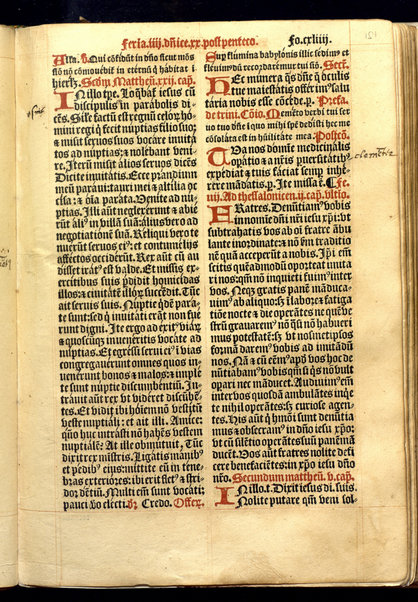 Feria.iiij.dñice.xx.post penteco. Fo.cxliiij.
Alla. ℣. Qui cõfidũt in dño sicut mõs
siõ nõ cõmouebit̃ in eternũ q̃ habitat i
hierlm̃. Scdm̃ Mattheũ.xxij.cap̃.
In illo tp̃e. Loq̃bat̃ iesus cũ
discipulis in parabolis di-
cẽs. Sile factũ est regnũ celor̃ ho-
mini regi q̃ fecit nuptias filio suo;
et misit seruos suos vocare inuita
tos ad nuptias: et nolebant veni-
re. Iterũ misit alios seruos dicẽs
Dicite inuitatis. Ecce prandium
meũ paraui: tauri mei et altilia oc
cisa: et oĩa parata. Uenite ad nu-
ptias. Illi aũt neglexerunt et abie
rũt ali9 in villã suã: ali9 vero ad ne
gotiationẽ suã. Reliqui vero te-
nuerũt seruos ei9: et contumelijs
affectos occiderũt. Rex aũt cũ au
disset irat9 est valde. Et missis ex-
ercitibus suis p̃didit homicidas
illos: et ciuitatẽ illoꝝ succẽdit. Tũc
ait seruis suis. Nuptie q̃dẽ para-
te sunt: sed q̃ inuitati erãt non fue
runt digni. Ite ergo ad exit9 viaꝝ
et quoscũq̃ inueneritis vocate ad
nuptias. Et egressi serui ei9 ĩ vias
congregauerunt omnes quos in-
uenerũt bonos et malos: et imple
te sunt nuptie discumbentiũ. In-
trauit aũt rex vt videret discũbẽ
tes. Et vidit ibi hõiem nõ vestitũ
veste nuptiali: et ait illi. Amice:
quo huc intrasti nõ habẽs vestem
nuptialẽ: At ille obmutuit. Tũc
dixit rex mĩstris. Ligatis manib9
et pedib9 ei9: mittite eũ in tene-
bras exteriores: ibi erit flet9 et stri-
dor dẽtiũ. Multi em̃ sunt vocati:
pauci vo electi. ℟. Credo. Offer̃.
Sup flumina babylonis illic sedim9 et
fleuim9 dũ recordaremur tui siõ. Secr̃.
Hec munera q̃s dñe q̃ oculis
tue maiestatis offerim9 salu
taria nobis esse cõcede. p. Prefa.
de trini. Cõio. Memẽto verbi tui ser
uo tuo dñe ĩ quo mihi spẽ dedisti hec me
cõsolata est in hũilitate mea. Postcõ.
Tua nos domine medicinalis
opatio et a nr̃is puersitatib9
expediat et tuis faciat semp inhe-
rere mãdatis. p. Ite missa ẽ. Fe.
iiij. Ad thessalonicen̄.ij.cap̃. vltio.
Fratres. Denũtiam9 vobis
in nomine dñi nr̃i iesu xp̃i: vt
subtrahatis vos ab oĩ fratre ãbu
lante inordinate: et nõ s'm traditio
nẽ quã acceperũt a nobis. Ip̃i em̃
scitis quẽadmodũ oporteat imita
ri nos: qm̃ nõ inquieti fuim9 inter
vos. Neq̃ gratis panẽ mãduca-
uim9 ab aliquo: sꝫ ĩ labore et fatiga
tiõe nocte et die opãtes ne quẽ ve-
strũ grauarem9: nõ q̃si nõ habueri
mus potestatẽ: sꝫ vt nosmetip̃os
formã darem9 vobis ad imitãdũ
nos. Nã et cũ eẽm9 apd vos hoc de
nũtiabam9 vobis: quõ si q̃s nõ vult
opari nec mãducet. Audiuim9 em̃
inter vos quosdã ambulãtes inq̃e
te nihil operãtes: sꝫ curiose agen-
tes. His aũt q̃ hmõi sunt denũtia
mus et obsecram9 in dño iesu xp̃o:
vt cũ silẽtio operãtes suũ panẽ mã
ducẽt. Uos aũt fratres nolite defi
cere benefaciẽtes: in xp̃o iesu dño
nr̃o. Secundum mattheum. v. cap̃.
In illo. t. Dixit iesus di. suis.
Nolite putare qm̃ veni sol-